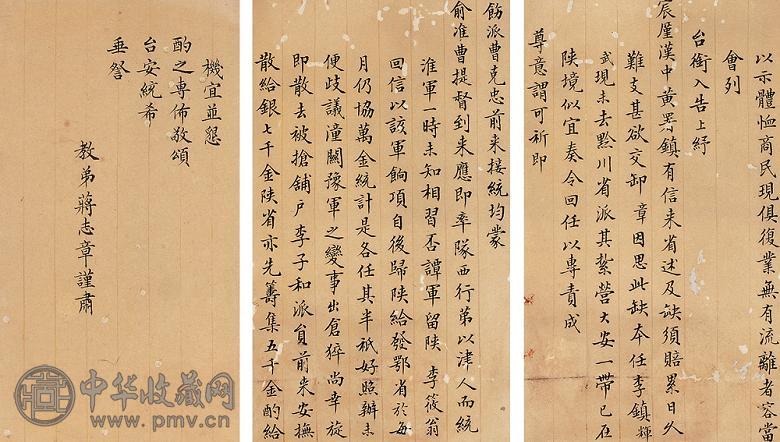 以示體恤商民現俱復業無有流離者容當
會列
台銜入告上紓
宸厪漢中黃鎮有信來省述及缺須賠累日久
難支甚欲交卸章因思此缺本任李鎮輝
武現未去黔川省派其紮營大安一帶已在
陝境似宜奏令回任以專責成
尊意謂可祈即
飭派曹克忠前來接統均蒙
俞准曹提督到來應即率隊西行第以津人而統
淮軍一時未知相習否譚軍留陝李筱翁
回信以該軍餉項自後歸陝給發鄂省於每
月仍協萬金統計是各任其半祇好照辦未
便歧議潼關豫軍之變事出倉猝尚幸旋
即散去被搶舖户李子和派員前來安撫
散給銀七千金陝省亦先籌集五千金酌給
機宜並懇
酌之專佈敬頌
台安統希
垂詧
教弟蔣志章謹肅
中华收藏网
www.pmv.cn